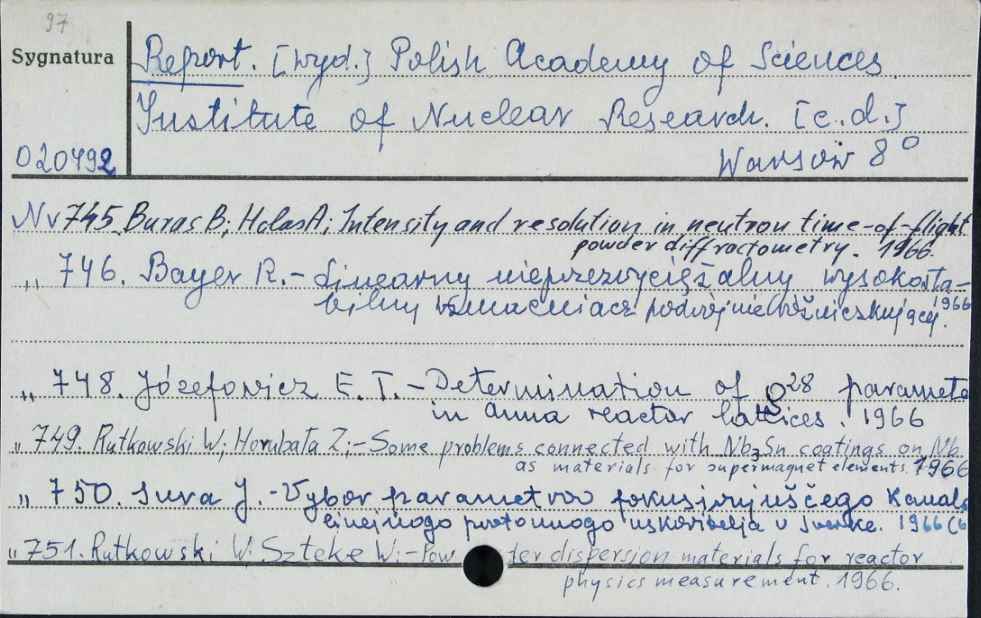 97
Sygnatura
Report. [wyd.] Polish Academy of Sciences
Institute of Nuclear Research. [c.d.]
020492
Warsow 8°
Nv 745. Buras B; Holas A; Intensity and resolution in neutron time-of-flight
powder diffractometry. 1966.
„ 746. Bayer R. - Linearny nieprzezwyciężalny wysokosta-
bilny wzmacniacz podwójnie różniczkujący. 1966
„ 748. Józefowicz E. T. - Determination of 28 paramete
in anna reactor lattices. 1966
„ 749. Rutkowski W; Horubała Z; - Some problems connected with Nb₃Sn coatings on Nb
as materials for supermagnet elements. 1966
„ 750. Sura J. - Vybor parametrov fokusirujuščego kanala
linejnogo protonnogo uskoritelja v 1966
„ 751. Rutkowski W; Szteke W; - Powder dispersion materials for reactor
physics measurement. 1966.